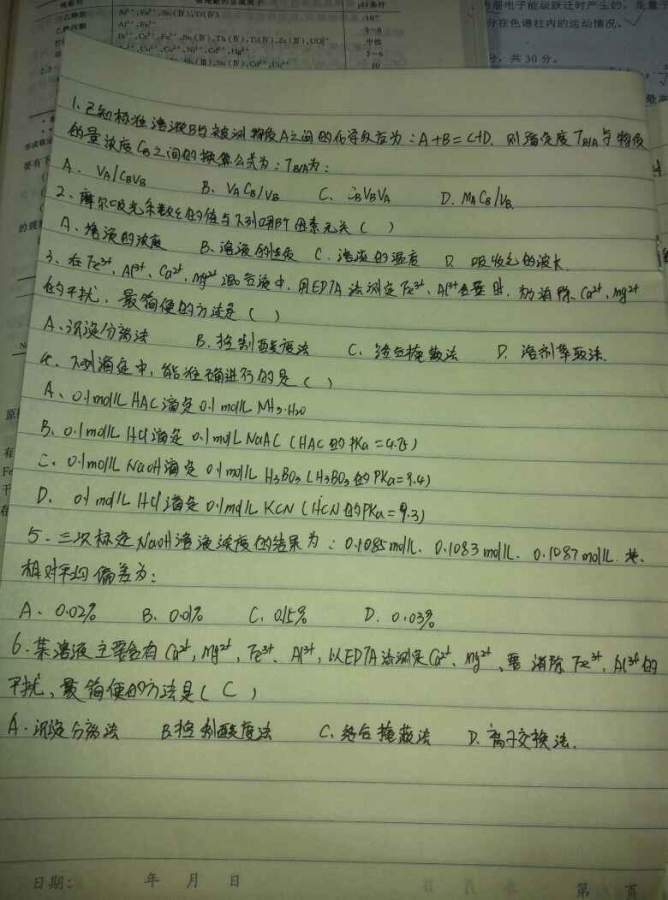 分在色谱柱内的运动情况。
分，共30分。
1.已知标准溶液B与被测物质A之间的化学反应为：A+B=C+D，则滴定度TB/A与物质
的量浓度CB之间的换算公式为：TB/A为：
A. VA/CBVB  B. VACB/VB  C. CBVBVA  D. MACB/VB
2、摩尔吸光系数ε的值与下列哪个因素无关（ ）
A、溶液的浓度 B、溶液的性质 C、溶液的温度 D、吸收光的波长
3、在Fe³⁺, Al³⁺、Ca²⁺, Mg²⁺混合液中，用EDTA法测定Fe³⁺、Al³⁺含量时，为消除Ca²⁺, Mg²⁺
的干扰，最简便的方法是（ ）
A、沉淀分离法 B、控制酸度法 C、络合掩蔽法 D、溶剂萃取法.
4、下列滴定中，能准确进行的是（ ）
A、0.1mol/L HAC滴定0.1mol/L NH3·H2O
B、0.1mol/L HCl滴定 0.1mol/L NaAC（HAC的PKa=4.75）
C、0.1mol/L NaOH滴定 0.1mol/L H3BO3（H3BO3的PKa=9.4）
D、0.1mol/L HCl滴定 0.1mol/L KCN（HCN的PKa=9.3）
5、三次标定NaOH溶液浓度的结果为：0.1085mol/L、0.1083mol/L、0.1087mol/L 其
相对平均偏差为：
A、0.02% B、0.01% C、0.15% D、0.03%
6、某溶液主要含有Ca²⁺, Mg²⁺, Fe³⁺、Al³⁺, 以EDTA法测定Ca²⁺、Mg²⁺、要消除Fe³⁺, Al³⁺的
干扰，最简便的方法是（C）
A、沉淀分离法 B.控制酸度法 C、络合掩蔽法 D、离子交换法.
日期： 年 月 日 第 页